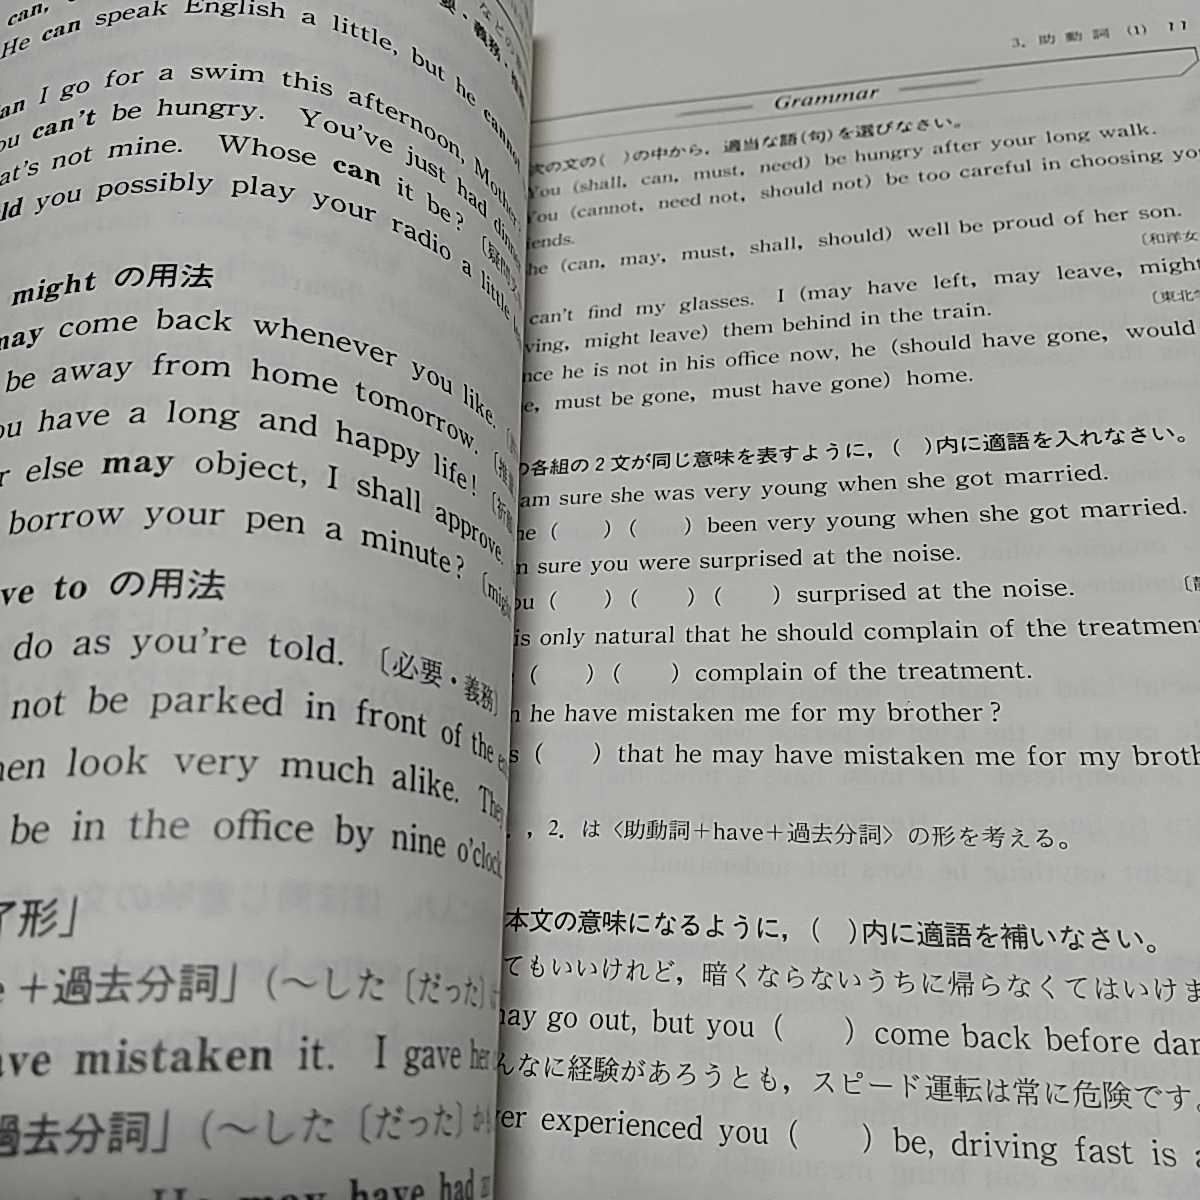 can,
He can speak English a little, but he cannot
an I go for a swim this afternoon, Mother?
ou can't be hungry. You've just had dinner.
at's not mine. Whose can it be?
ld you possibly play your radio a little
might の用法
may come back whenever you like.
be away from home tomorrow.
ou have a long and happy life!
r else may object, I shall approve.
borrow your pen a minute?
ve to の用法
do as you're told. 〔必要・義務〕
not be parked in front of the
men look very much alike. They
be in the office by nine o'clock
了形」
e ＋過去分詞」(～した〔だった〕
ave mistaken it. I gave her
過去分詞」(～した〔だった〕
He may have had
3. 助動詞 (1) 11
Grammar
次の文の( )の中から, 適当な語(句)を選びなさい。
You (shall, can, must, need) be hungry after your long walk.
You (cannot, need not, should not) be too careful in choosing you
iends.
he (can, may, must, shall, should) well be proud of her son.
〔和洋女
can't find my glasses. I (may have left, may leave, might
ving, might leave) them behind in the train.
〔東北学
nce he is not in his office now, he (should have gone, would
e, must be gone, must have gone) home.
の各組の2文が同じ意味を表すように, ( )内に適語を入れなさい。
am sure she was very young when she got married.
he ( ) ( ) been very young when she got married.
n sure you were surprised at the noise.
ou ( ) ( ) ( ) surprised at the noise.
is only natural that he should complain of the treatment
( ) ( ) complain of the treatment.
n he have mistaken me for my brother?
s ( ) that he may have mistaken me for my broth
, 2. は〈助動詞＋have＋過去分詞〉の形を考える。
本文の意味になるように, ( )内に適語を補いなさい。
てもいいけれど, 暗くならないうちに帰らなくてはいけま
may go out, but you ( ) come back before dar
んなに経験があろうとも, スピード運転は常に危険です。
ver experienced you ( ) be, driving fast is a